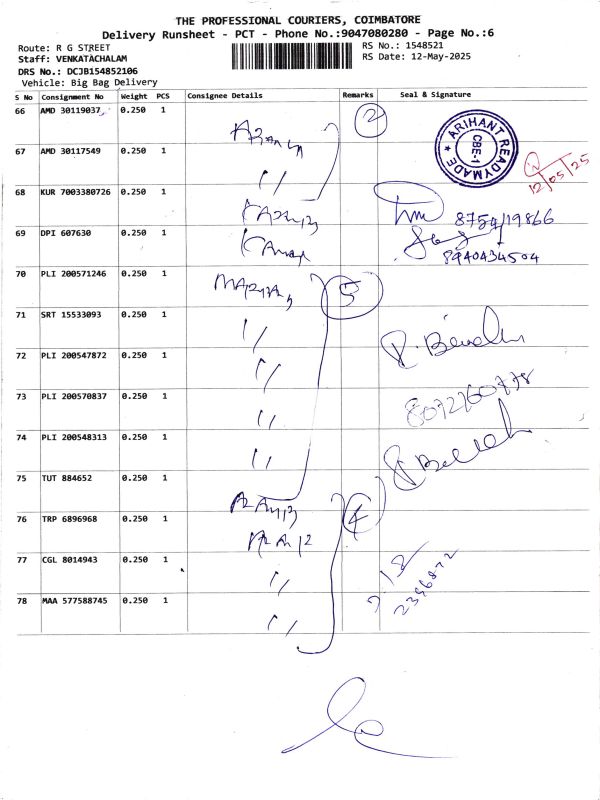 THE PROFESSIONAL COURIERS, COIMBATORE
Delivery Runsheet - PCT - Phone No.:9047080280 - Page No.:6
Route: R G STREET
Staff: VENKATACHALAM
DRS No.: DCJB154852106
Vehicle: Big Bag Delivery
RS No.: 1548521
RS Date: 12-May-2025
S No Consignment No Weight PCS Consignee Details Remarks Seal & Signature
66 AMD 30119037 0.250 1 2
ARIHANT READYMADE
CBE-1
12/05/25
67 AMD 30117549 0.250 1 〃
68 KUR 7003380726 0.250 1
8754119866
69 DPI 607630 0.250 1
8940434504
70 PLI 200571246 0.250 1 5
71 SRT 15533093 0.250 1 〃
72 PLI 200547872 0.250 1 〃
73 PLI 200570837 0.250 1 〃
8072760778
74 PLI 200548313 0.250 1 〃
75 TUT 884652 0.250 1
76 TRP 6896968 0.250 1 4
77 CGL 8014943 0.250 1 〃
2396872
78 MAA 577588745 0.250 1 〃